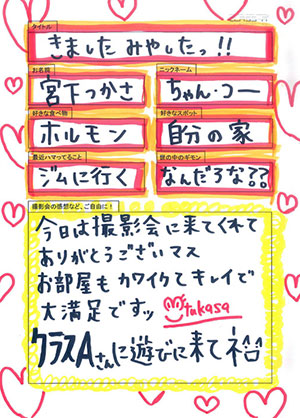 タイトル
きました みやしたっ!!
お名前
宮下つかさ
ニックネーム
ちゃん・つー
好きな食べ物
ホルモン
好きなスポット
自分の家
最近ハマってること
ジムに行く
世の中のギモン
なんだろな??
撮影会の感想など、ご自由に!
今日は撮影会に来てくれて
ありがとうございマス
お部屋もカワイクてキレイで
大満足ですッ
tukasa
クラスAさんに遊びに来て